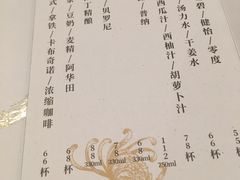 碧/健怡/零度
汤力水/干姜水
西瓜汁/西柚汁/胡萝卜汁
普纳
贝罗尼
丁精酿
豆奶/麦精/阿华田
式/拿铁/卡布奇诺/浓缩咖啡
55杯
78杯
112 250ml
68 330ml
78 330ml
88 330ml
68杯
66杯